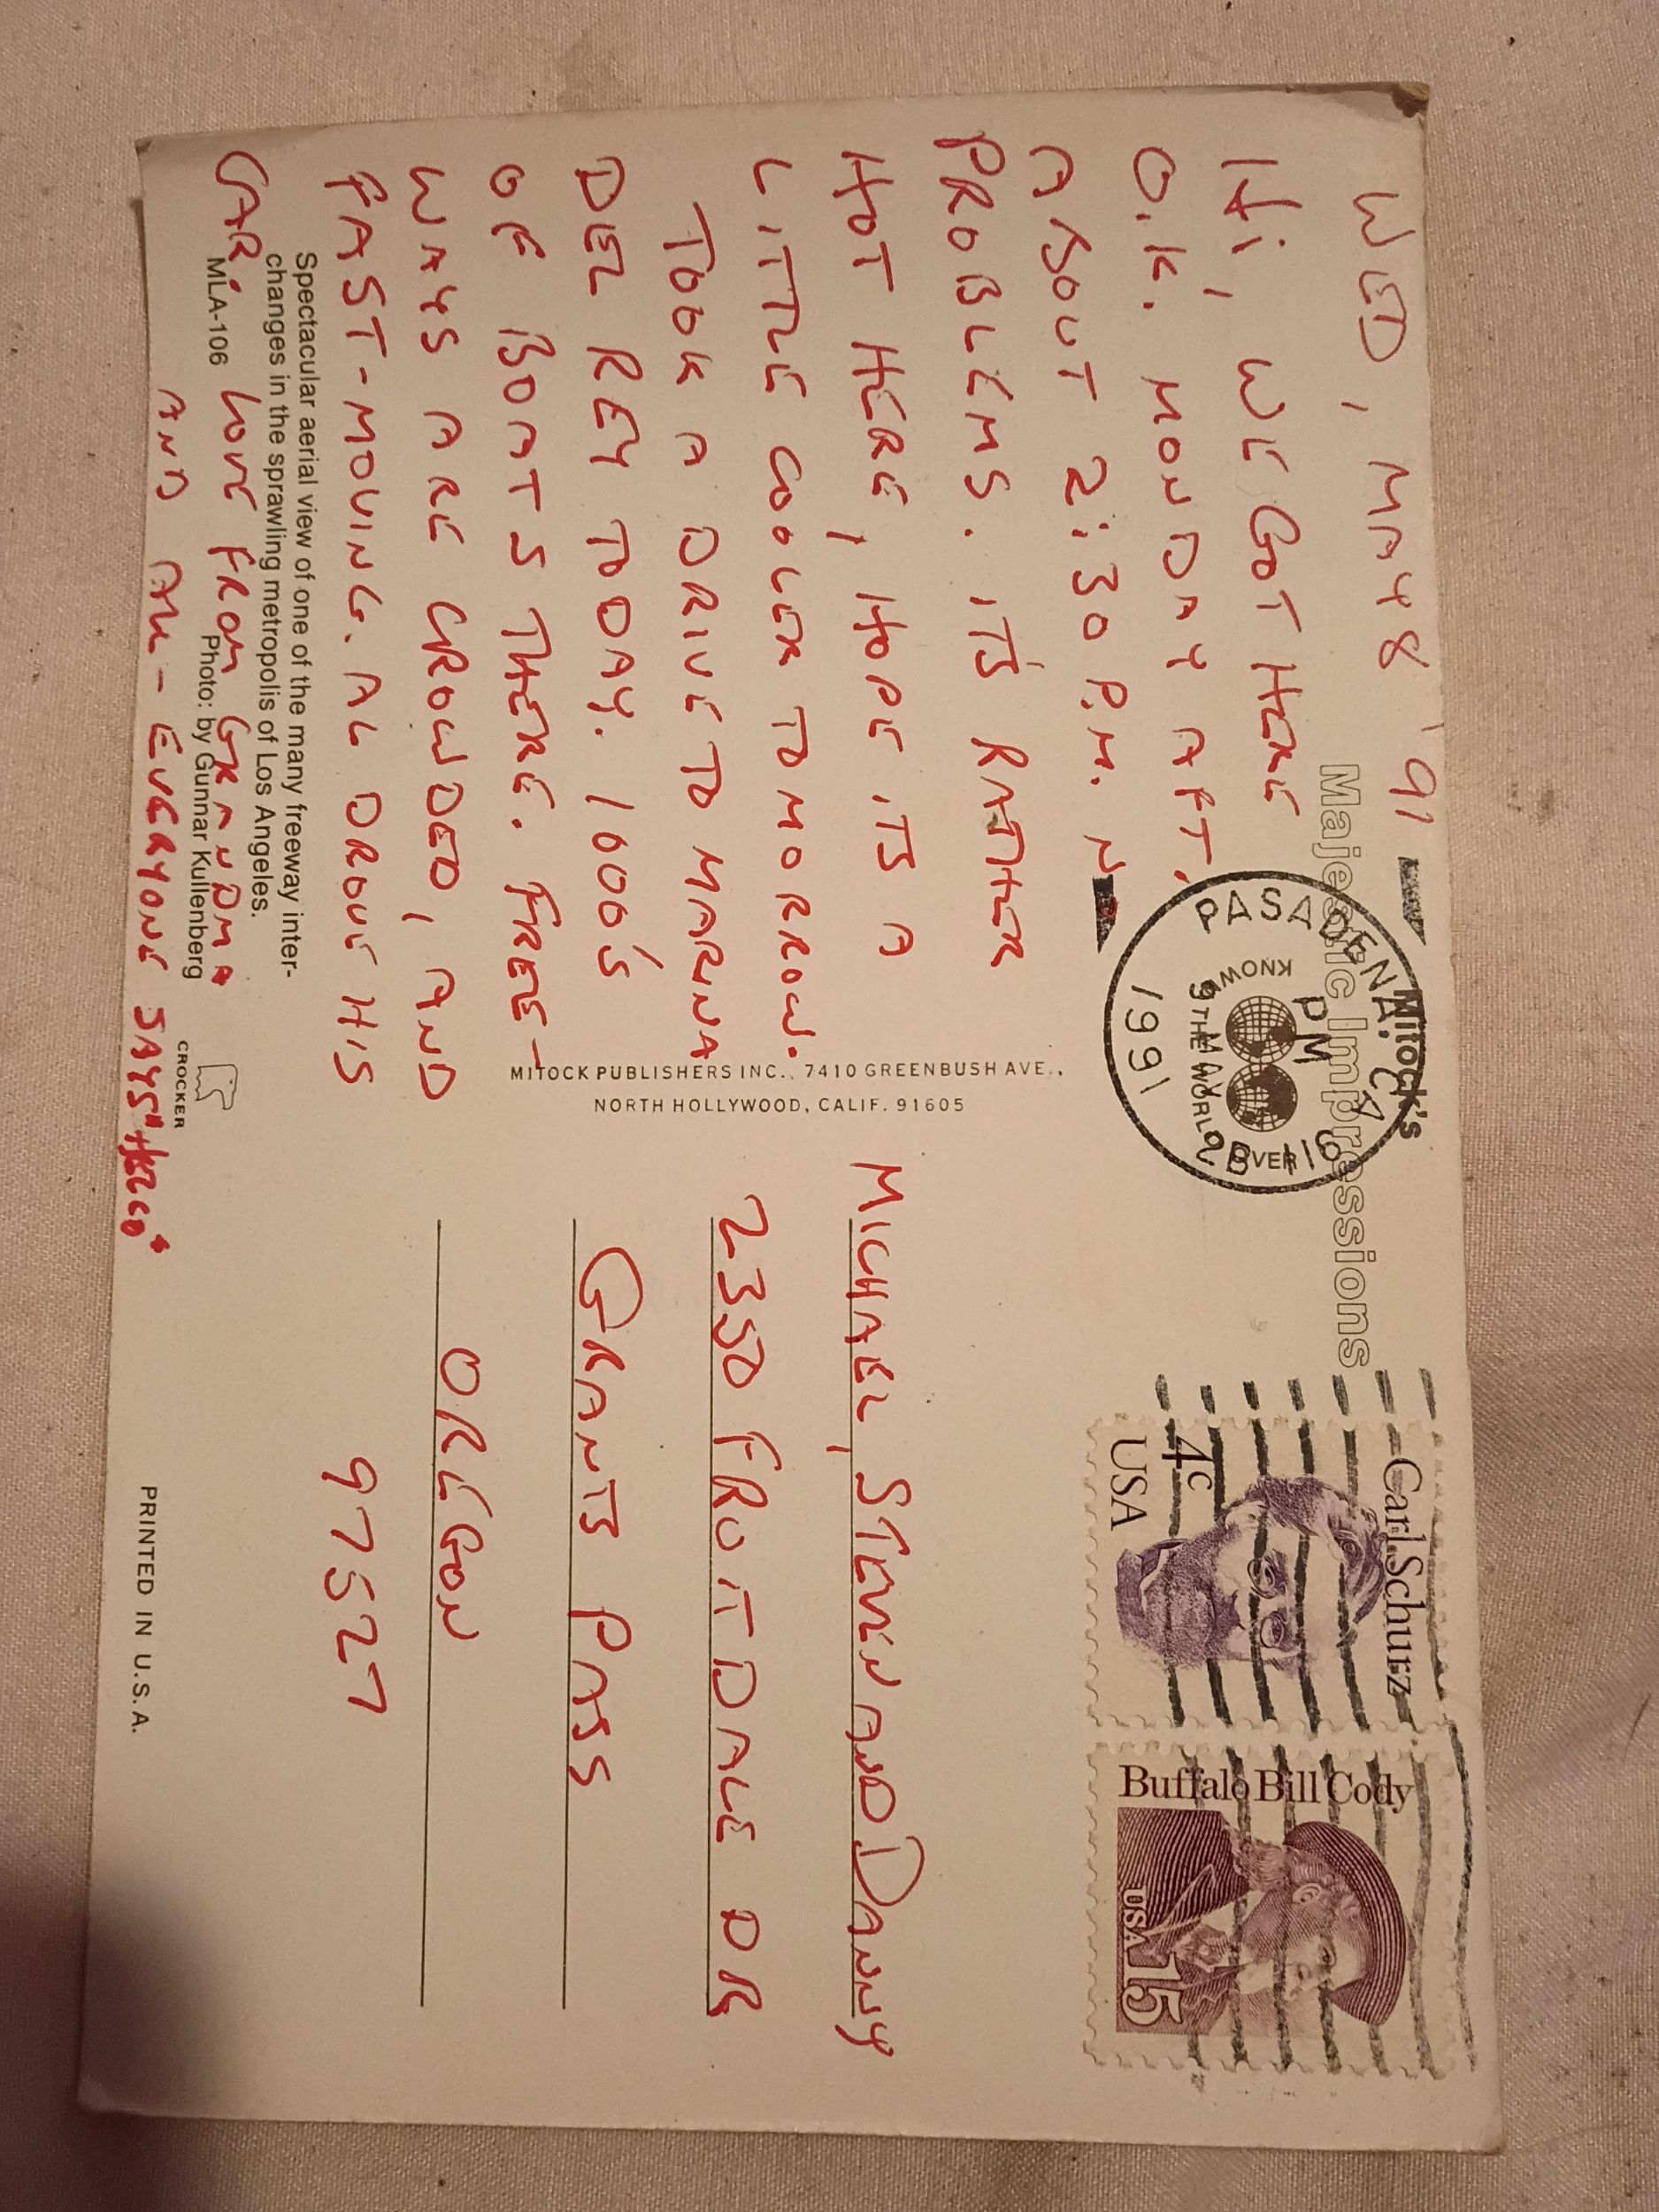 WED, MAY 8 '91
Mitock's
Majestic Impressions
HI, WE GOT HERE
O.K. MONDAY AFT.
ABOUT 2:30 P.M. N
PROBLEMS. ITS RATHER
HOT HERE, HOPE ITS A
LITTLE COOLER TOMORROW.
TOOK A DRIVE TO MARINA
DEL REY TODAY. 1000'S
OF BOATS THERE. FREE-
WAYS ARE CROWDED, AND
FAST-MOVING. AL DROVE HIS
CAR. LOVE FROM GRANDMA
AND AL - EVERYONE SAYS "HELLO"
Spectacular aerial view of one of the many freeway inter-
changes in the sprawling metropolis of Los Angeles.
MLA-106 Photo: by Gunnar Kullenberg
CROCKER
MITOCK PUBLISHERS INC., 7410 GREENBUSH AVE.,
NORTH HOLLYWOOD, CALIF. 91605
PASADENA, CA
PM
9 MAY
1991
KNOW
THE WORLD
Carl Schurz
4c
USA
Buffalo Bill Cody
USA 15
MICHAEL, STEVEN AND DANNY
2350 FRUITDALE DR
GRANTS PASS
OREGON
97527
PRINTED IN U.S.A.